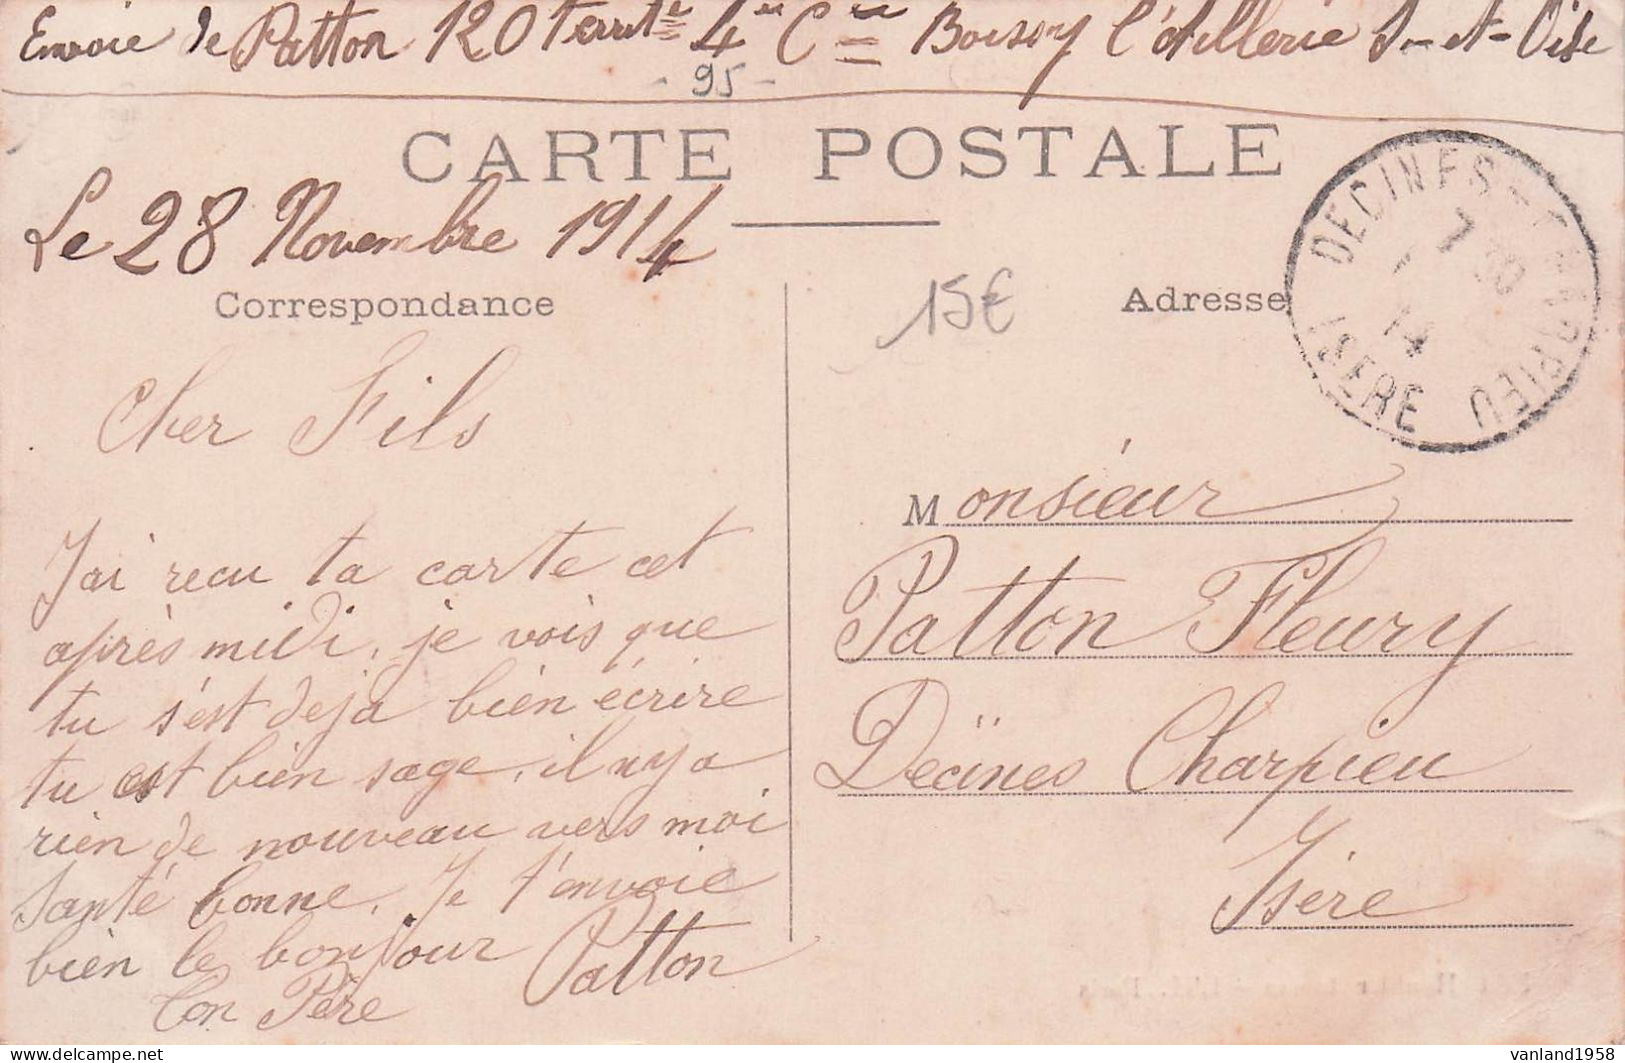 Envoie de Patton 120 Territle 4eme Cnie Boissy l'Aillerie S-et-Oise
- 95 -
CARTE POSTALE
Le 28 Novembre 1914
Correspondance
Cher Fils
J'ai recu ta carte cet
après midi, je vois que
tu s'est deja bien écrire
tu est bien sage, il n'y a
rien de nouveau vers moi
Santé bonne, Je t'envoie
bien le bonjour Patton
Ton Père
15€
Adresse
DECINES-CHARPIEU
7 30
14
ISERE
Monsieur
Patton Fleury
Decïnes Charpieu
Isère
vanland1958